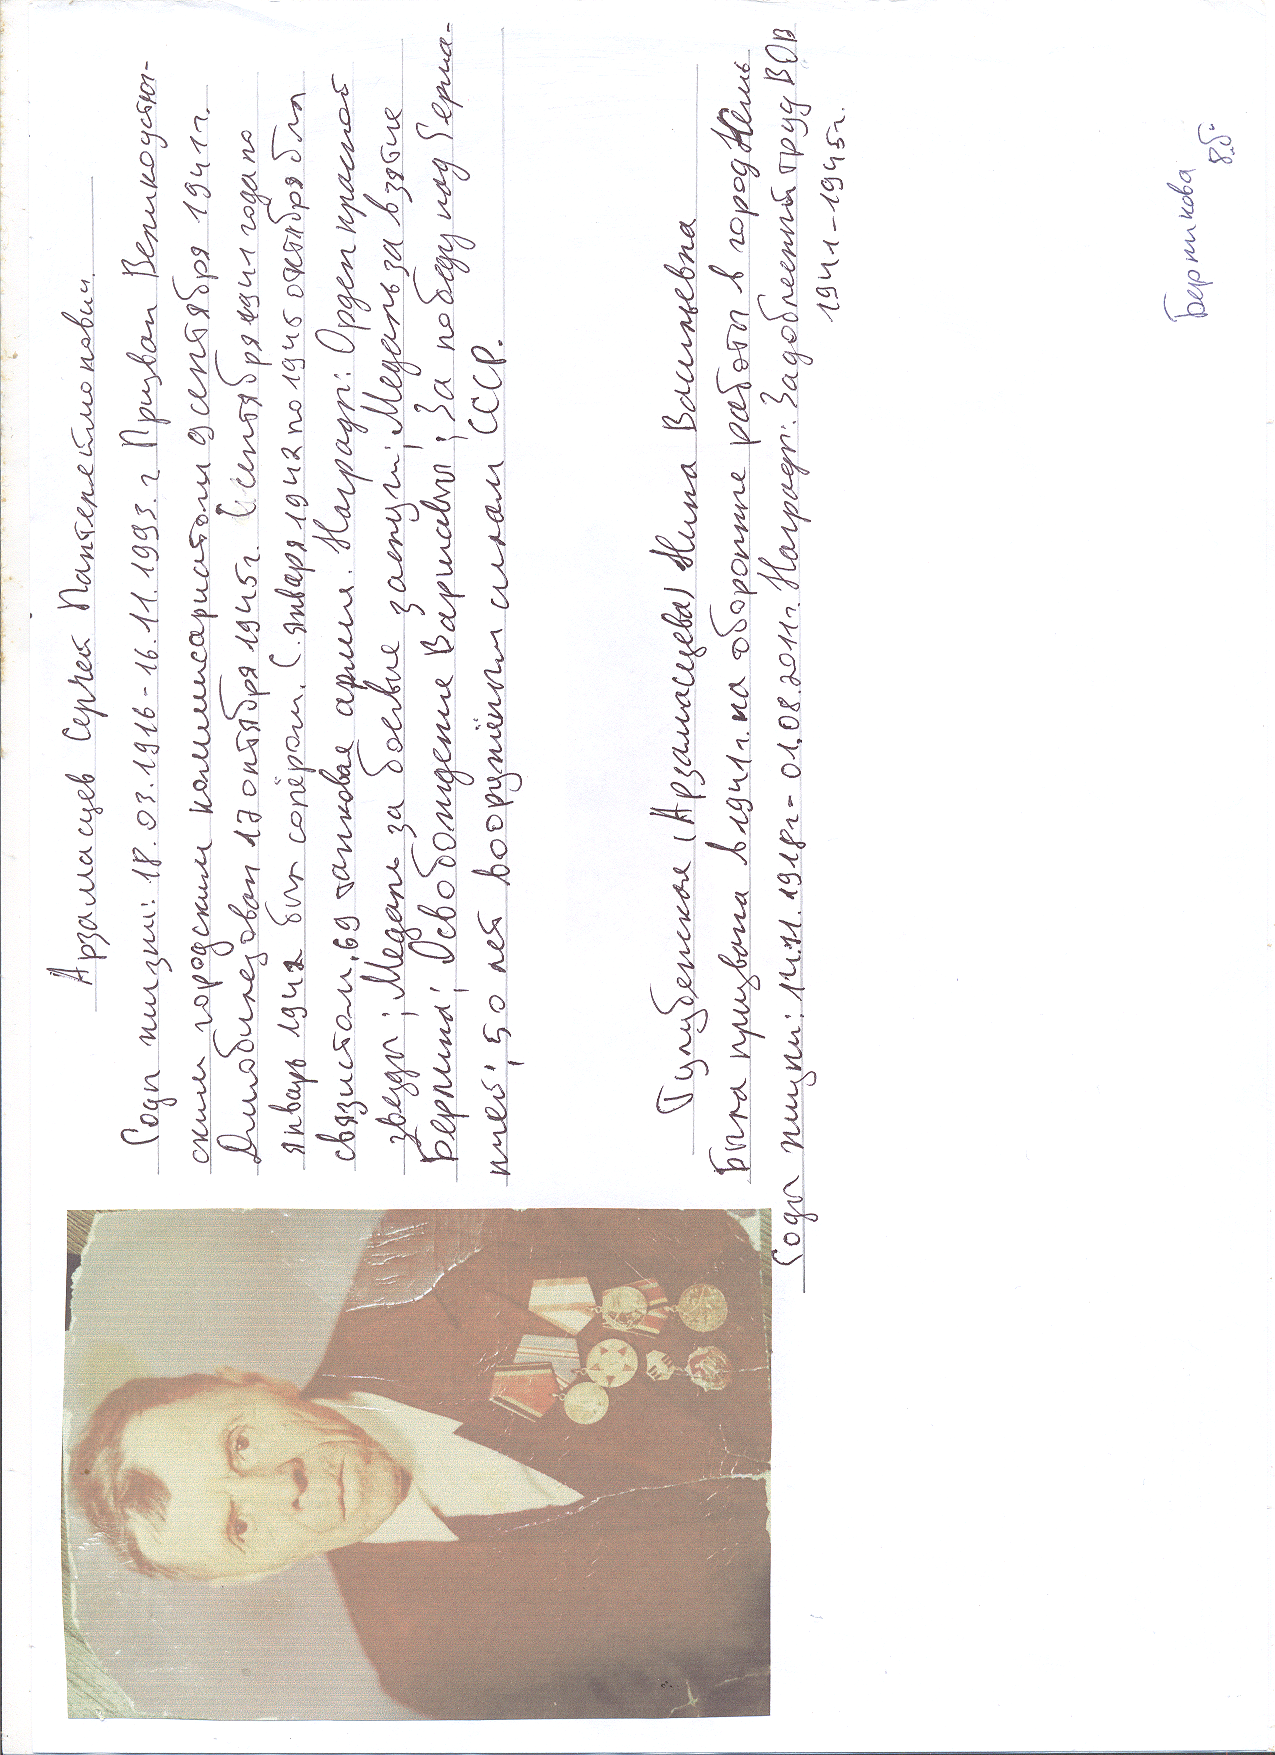 Арзамасцев Сергей Пантелеймонович
Годы жизни: 18.03.1916-16.11.1993.г Призван Великоустюг-
ским городским коммисариатом 9 сентября 1941г.
Димобилезован 17 октября 1945г. С сентября 1941 года по
январь 1942 был сапёром. С января 1942 по 1945 октября был
связистом, 69 танковая армия. Награды: Орден красной
звезды; Медаль за боевые заслуги; Медаль за взятие
Берлина; Освобождение Варшавы; За победу над Герма-
нией; 50 лет вооружённым силам СССР.
(Арзамасцева) Нина Васильевна
Была призвана в 1941г. на оборонные работы в город
Годы жизни: 14.11.1918г- 01.08.2011г. Награды: За доблестный труд ВОВ
1941-1945г.
Берникова
8"б"